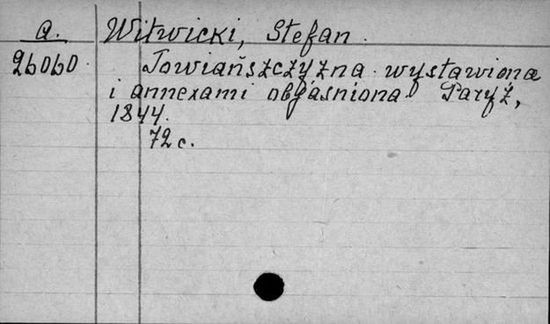 a. Witwicki, Stefan.
26060. Towiańszczyzna wystawiona
i annexami objaśniona. Paryż,
1844.
72 c.